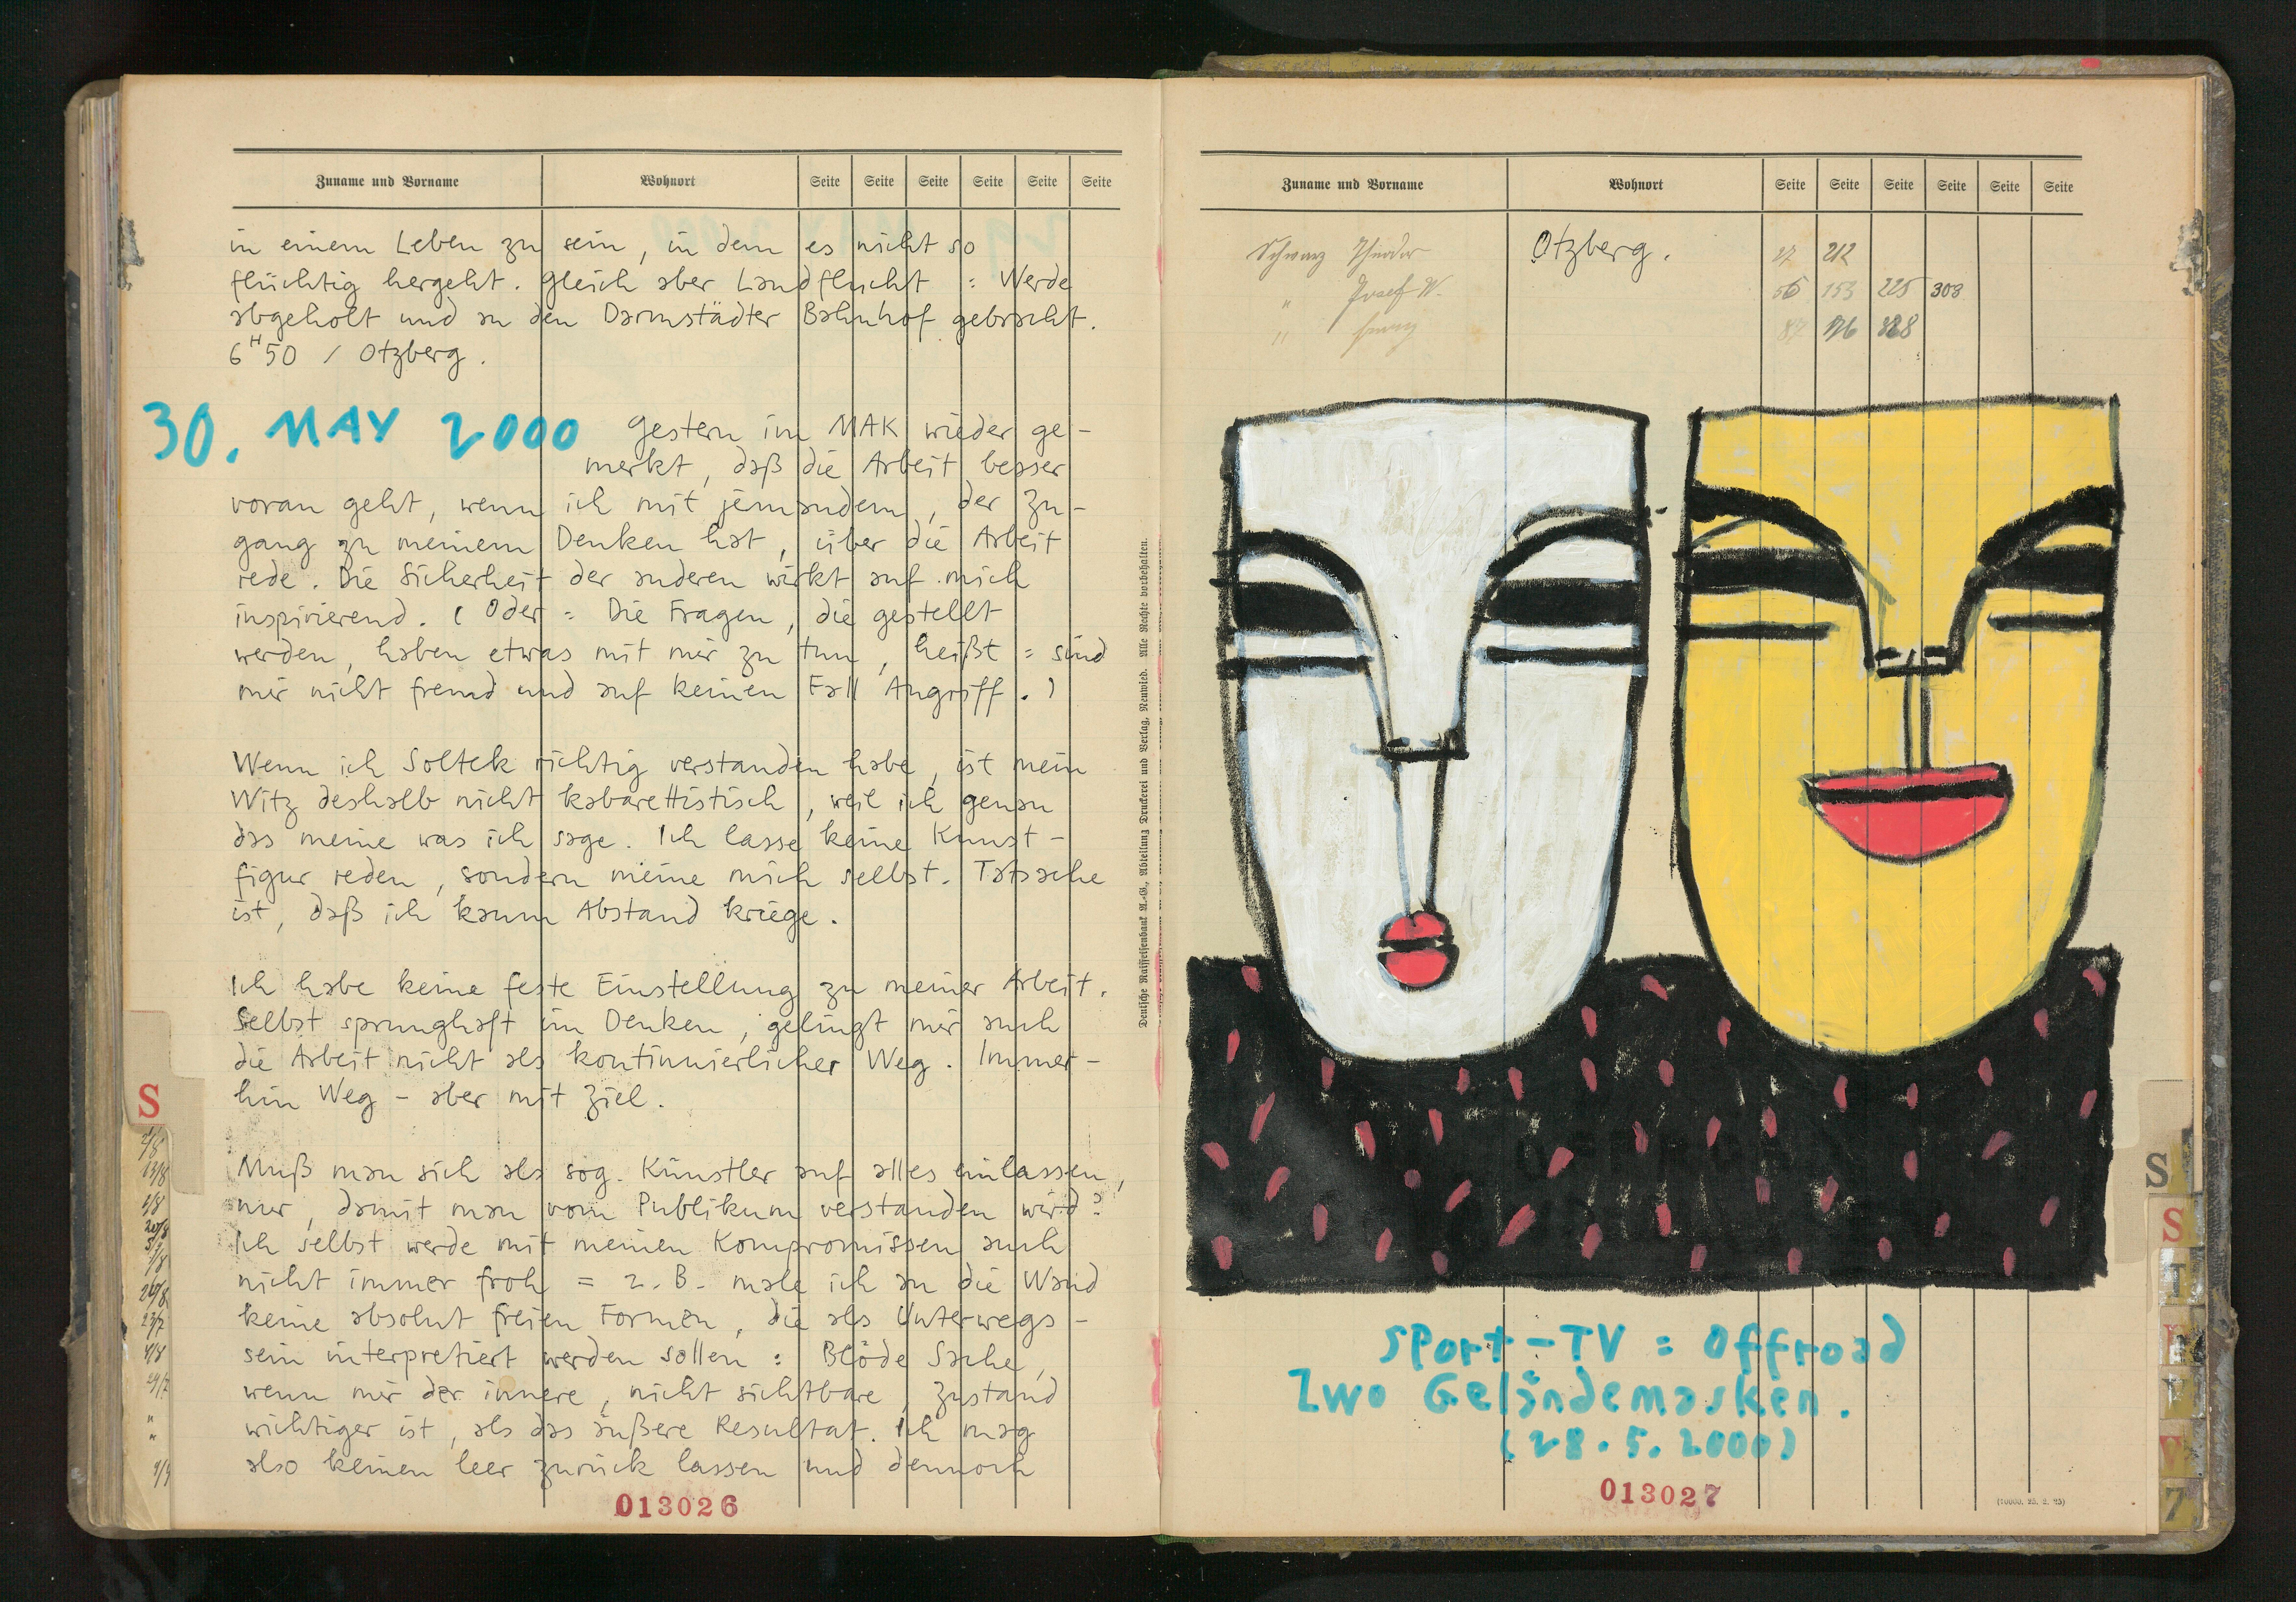 Zuname und Vorname Wohnort Seite Seite Seite Seite Seite Seite
in einem Leben zu sein, in dem es nicht so
flüchtig hergeht. Gleich aber Landflucht = Werde
abgeholt und an den Darmstädter Bahnhof gebracht.
6H50 / Otzberg.
30. MAY 2000 Gestern im MAK wieder ge-
merkt, daß die Arbeit besser
voran geht, wenn ich mit jemandem, der Zu-
gang zu meinem Denken hat, über die Arbeit
rede. Die Sicherheit der anderen wirkt auf mich
inspirierend. (Oder = Die Fragen, die gestellt
werden, haben etwas mit mir zu tun, heißt = sind
mir nicht fremd und auf keinen Fall Angriff.)
Wenn ich Soltek richtig verstanden habe, ist mein
Witz deshalb nicht kabarettistisch, weil ich genau
das meine was ich sage. Ich lasse keine Kunst-
figur reden, sondern meine mich selbst. Tatsache
ist, daß ich kaum Abstand kriege.
Ich habe keine feste Einstellung zu meiner Arbeit.
Selbst sprunghaft im Denken, gelingt mir auch
die Arbeit nicht als kontinuierlicher Weg. Immer-
hin Weg – aber mit Ziel.
Muß man sich als sog. Künstler auf alles einlassen,
nur, damit man vom Publikum verstanden wird?
Ich selbst werde mit meinen Kompromissen auch
nicht immer froh = z.B. male ich an die Wand
keine absolut freien Formen, die als Unterwegs-
sein interpretiert werden sollen = Blöde Sache,
wenn mir der innere, nicht sichtbare, Zustand
wichtiger ist, als das äußere Resultat. Ich mag
also keinen leer zurück lassen und dennoch
013026
S
Deutsche Raiffeisenbank A.-G., Abteilung Druckerei und Verlag, Neuwied. Alle Rechte vorbehalten.
Zuname und Vorname Wohnort Seite Seite Seite Seite Seite Seite
Schwarz Theodor Otzberg. 212
" Josef W. 56 153 225 303
"
Sport-TV = Offroad
Zwo Geländemasken.
(28.5.2000)
013027
S
S
T
W
Z